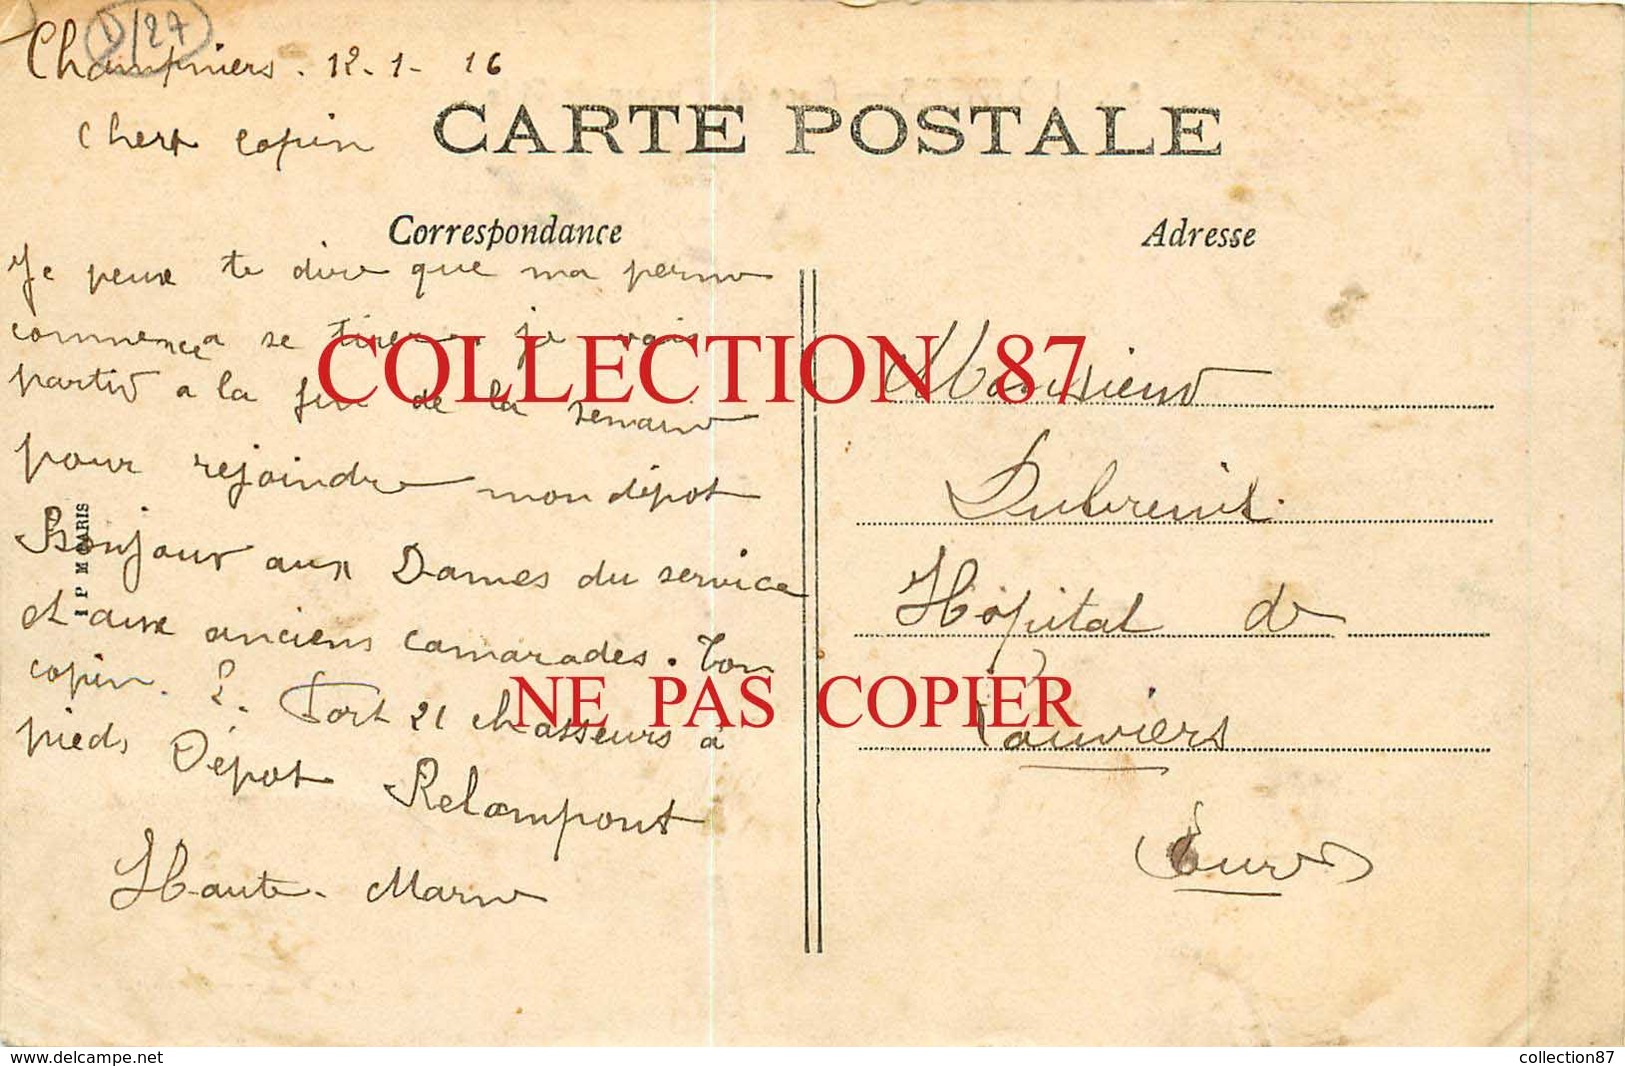 D/27
Champniers. 12-1-16
CARTE POSTALE
Cher copin
Correspondance
Adresse
Je peux te dire que ma perme
commence a se tirer. je vais
partir a la fin de la semaine
pour rejoindre mon dépot
Bonjour aux Dames du service
et aux anciens camarades. Ton
copin. L. Fort 21 chasseurs à
pieds Dépot Rolampont
Haute-Marne
I P M PARIS
Monsieur
Dubreuil
Hôpital de
Louviers
Eure
COLLECTION 87
NE PAS COPIER
www.delcampe.net
collection87